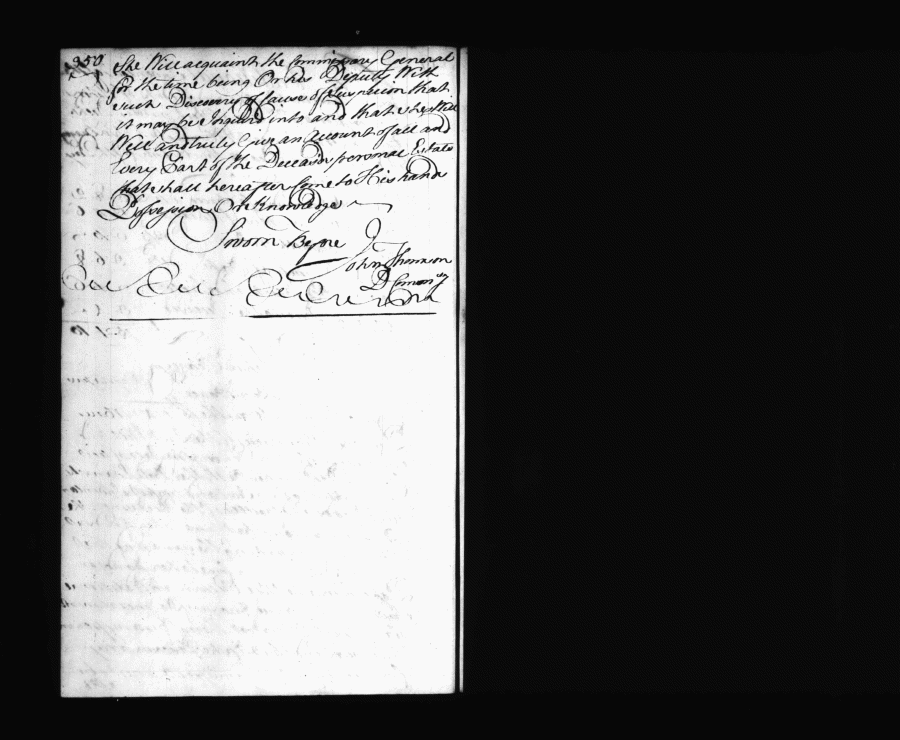 350
She Will acquaint the Commissary General
for the time being Or his Deputy With
such Discovery of Cause of Suspicion that
it may be Inquird into and that she Will
Well and truly Give an Account of all and
Every Part of the Deceasds personal Estate
that shall hereafter Come to His hands
Possession Or Knowledge
Sworn Before
John Thomson
D Comry